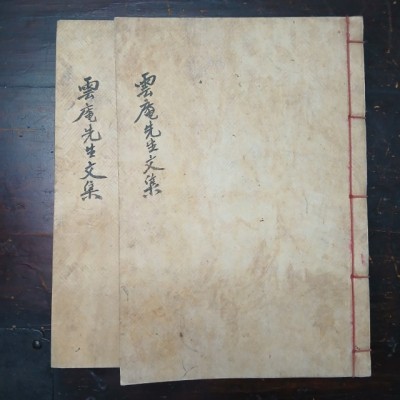 雲庵先生文集
雲庵先生文集